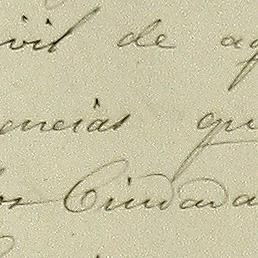 ivil de ag
encias qu
los Ciudada